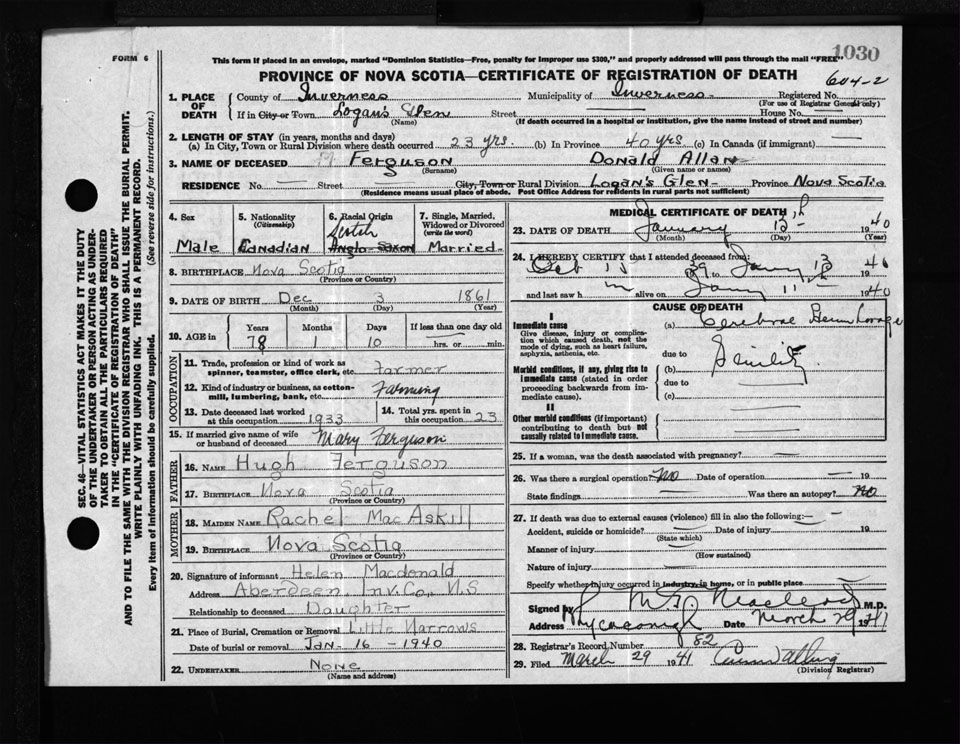 1030
FORM 6
This form if placed in an envelope, marked "Dominion Statistics—Free, penalty for improper use $300," and properly addressed will pass through the mail "FREE"
PROVINCE OF NOVA SCOTIA—CERTIFICATE OF REGISTRATION OF DEATH
604-2
1. PLACE OF DEATH County of Inverness Municipality of Inverness Registered No.
(For use of Registrar General only)
If in City or Town Logan's Glen Street — House No. —
(Name) (If death occurred in a hospital or institution, give the name instead of street and number)
2. LENGTH OF STAY (in years, months and days)
(a) In City, Town or Rural Division where death occurred 23 yrs. (b) In Province 40 yrs (c) In Canada (if immigrant) —
3. NAME OF DECEASED Ferguson Donald Allan
(Surname) (Given name or names)
RESIDENCE No. — Street — City, Town or Rural Division Logan's Glen Province Nova Scotia
(Residence means usual place of abode. Post Office Address for residents in rural parts not sufficient)
4. Sex Male
5. Nationality (Citizenship) Canadian
6. Racial Origin Scotch Anglo-Saxon
7. Single, Married, Widowed or Divorced (write the word) Married
8. BIRTHPLACE Nova Scotia
(Province or Country)
9. DATE OF BIRTH Dec 3 1861
(Month) (Day) (Year)
10. AGE in Years 78 Months 1 Days 10 If less than one day old — hrs. or — min.
OCCUPATION
11. Trade, profession or kind of work as spinner, teamster, office clerk, etc. Farmer
12. Kind of industry or business, as cotton-mill, lumbering, bank, etc. Farming
13. Date deceased last worked at this occupation 1933
14. Total yrs. spent in this occupation 23
15. If married give name of wife or husband of deceased Mary Ferguson
FATHER
16. NAME Hugh Ferguson
17. BIRTHPLACE Nova Scotia
(Province or Country)
MOTHER
18. MAIDEN NAME Rachel MacAskill
19. BIRTHPLACE Nova Scotia
(Province or Country)
20. Signature of informant Helen Macdonald
Address Aberdeen Inv. Co., N.S
Relationship to deceased Daughter
21. Place of Burial, Cremation or Removal Little Narrows
Date of burial or removal Jan- 16 - 1940
22. UNDERTAKER None
(Name and address)
MEDICAL CERTIFICATE OF DEATH
23. DATE OF DEATH January 13 1940
(Month) (Day) (Year)
24. I HEREBY CERTIFY that I attended deceased from:
39 to 13 1940
and last saw h m alive on 11 1940
CAUSE OF DEATH
I
Immediate cause (a) Cerebral Hemorrhage
Give disease, injury or complication which caused death, not the mode of dying, such as heart failure, asphyxia, asthenia, etc.
due to
Morbid conditions, if any, giving rise to immediate cause (stated in order proceeding backwards from immediate cause). (b) Senility
due to
(c)
II
Other morbid conditions (if important) contributing to death but not causally related to immediate cause.
25. If a woman, was the death associated with pregnancy? —
26. Was there a surgical operation? No Date of operation — 19
State findings — Was there an autopsy? No
27. If death was due to external causes (violence) fill in also the following:—
Accident, suicide or homicide? — Date of injury — 19
(State which)
Manner of injury —
(How sustained)
Nature of injury —
Specify whether injury occurred in industry, in home, or in public place —
Signed by Macleod M.D.
Address Whycocomagh Date March 29 1941
28. Registrar's Record Number 82
29. Filed March 29 1941
(Division Registrar)
SEC. 46—VITAL STATISTICS ACT MAKES IT THE DUTY
OF THE UNDERTAKER OR PERSON ACTING AS UNDER-
TAKER TO OBTAIN ALL THE PARTICULARS REQUIRED
IN THE "CERTIFICATE OF REGISTRATION OF DEATH"
AND TO FILE THE SAME WITH THE DIVISION REGISTRAR WHO SHALL ISSUE THE BURIAL PERMIT.
WRITE PLAINLY WITH UNFADING INK. THIS IS A PERMANENT RECORD.
Every item of information should be carefully supplied. (See reverse side for instructions.)